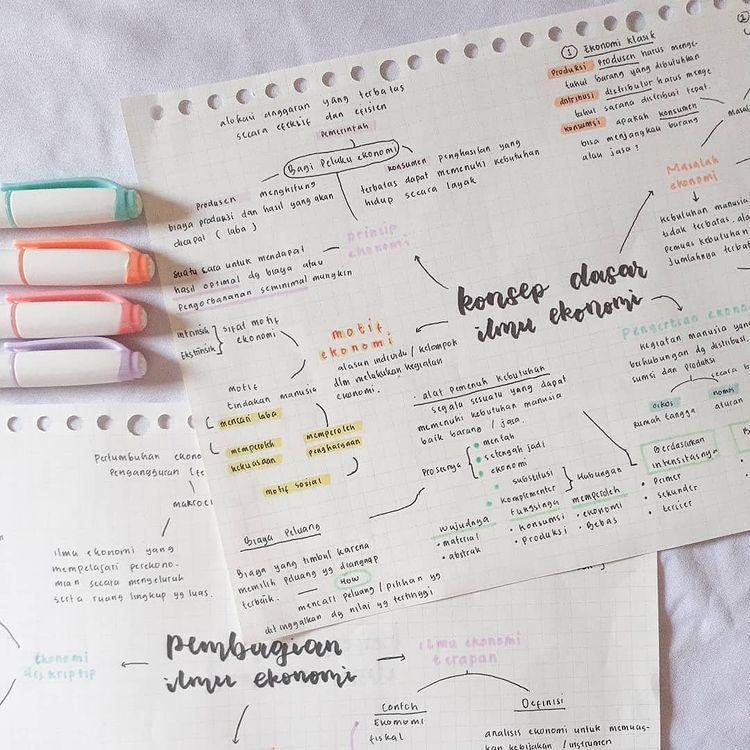 alokasi anggaran yang terbatas
secara efektif dan efisien
Pemerintah
Bagi Pelaku ekonomi
Produsen menghitung
biaya produksi dan hasil yang akan
dicapai ( laba )
konsumen penghasilan yang
terbatas dapat memenuhi kebutuhan
hidup secara layak
prinsip
ekonomi
suatu cara untuk mendapat
hasil optimal dg biaya atau
Pengorbanan seminimal mungkin
① Ekonomi Klasik
Produksi Produsen harus menge-
tahui barang yang dibutuhkan
distribusi distributor harus menge
tahui sarana distribusi tepat.
konsumsi apakah konsumen
bisa menjangkau barang
atau jasa !
②
Masalah
ekonomi
kebutuhan manusia
tidak terbatas, ala
pemuas kebutuhan
Jumlahnya terba
konsep dasar
ilmu ekonomi
Pengertian ekono
kegiatan manusia yan
berhubungan dg distribusi,
sumsi dan produksi
secara b
oikos
rumah tangga
nomos
aturan
motif
ekonomi
alasan individu / kelompok
dlm melakukan kegiatan
ekonomi.
Intrinsik
Ekstrinsik
sifat motif
ekonomi
motif
tindakan manusia
mencari laba
memperoleh
kekuasaan
memperoleh
penghargaan
motif sosial
alat pemenuh kebutuhan
segala sesuatu yang dapat
memenuhi kebutuhan manusia
baik barang / jasa.
Prosesnya
• mentah
• setengah jadi
• ekonomi
• substitusi
• komplementer
Hubungan
wujudnya
• material
• abstrak
fungsinya
• konsumsi
• Produksi
memperoleh
• ekonomi
• Bebas
Berdasarkan
intensitasnya
• Primer
• sekunder
• tersier
Biaya Peluang
Biaya yang timbul karena
memilih peluang yg dianggap
terbaik.
How
mencari peluang / pilihan yg
ditinggalkan dg nilai yg tertinggi
Pertumbuhan ekono
Pengangguran
makro
ilmu ekonomi yang
mempelajari perekono-
mian secara menyeluruh
serta ruang lingkup yg luas.
ekonomi
deskriptip
pembagian
ilmu ekonomi
ilmu ekonomi
terapan
Contoh
Ekomomi
fiskal
Definisi
analisis ekonomi untuk memuas-
kan kebijakan / instrumen